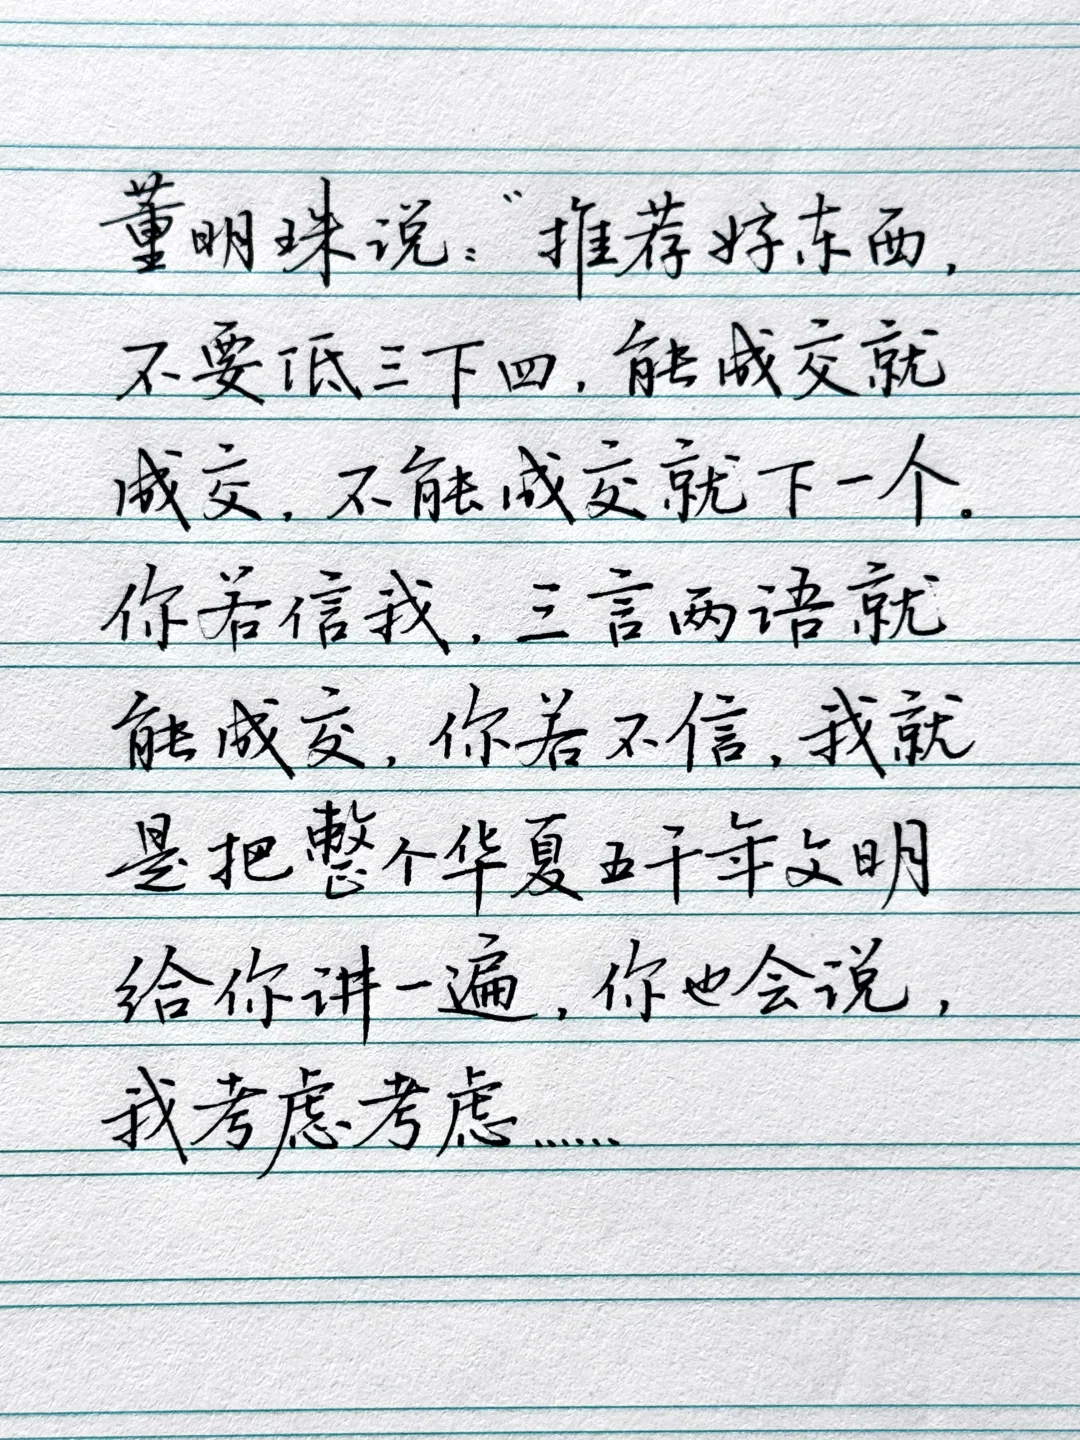 董明珠说:“推荐好东西,
不要低三下四,能成交就
成交,不能成交就下一个。
你若信我,三言两语就
能成交,你若不信,我就
是把整个华夏五千年文明
给你讲一遍,你也会说,
我考虑考虑......